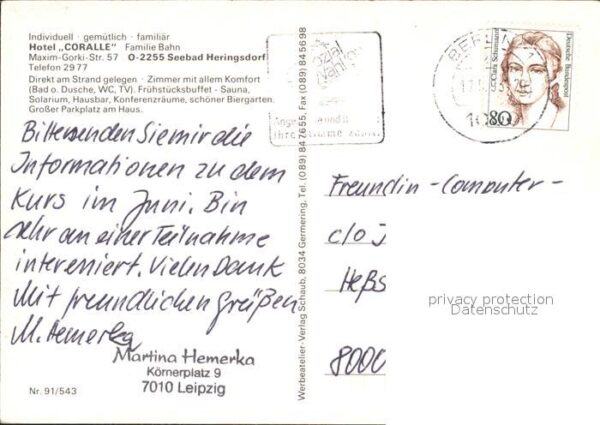 Individuell · gemütlich · familiär
Hotel „CORALLE" Familie Bahn
Maxim-Gorki-Str. 57 O-2255 Seebad Heringsdorf
Telefon 29 77
Direkt am Strand gelegen · Zimmer mit allem Komfort
(Bad o. Dusche, WC, TV). Frühstücksbuffet - Sauna,
Solarium, Hausbar, Konferenzräume, schöner Biergarten.
Großer Parkplatz am Haus.
Bitte senden Sie mir die
Informationen zu dem
Kurs im Juni. Bin
sehr an einer Teilnahme
interessiert. Vielen Dank
Mit freundlichen Grüßen
M. Hemerka
Martina Hemerka
Körnerplatz 9
7010 Leipzig
Nr. 91/543
Werbeatelier-Verlag Schaub, 8034 Germering, Tel. (089) 847655, Fax (089) 845698
BERLIN
Clara Schumann
Deutsche Bundespost
80
Freundin-Computer-
c/o J
Heßs
8000
privacy protection
Datenschutz